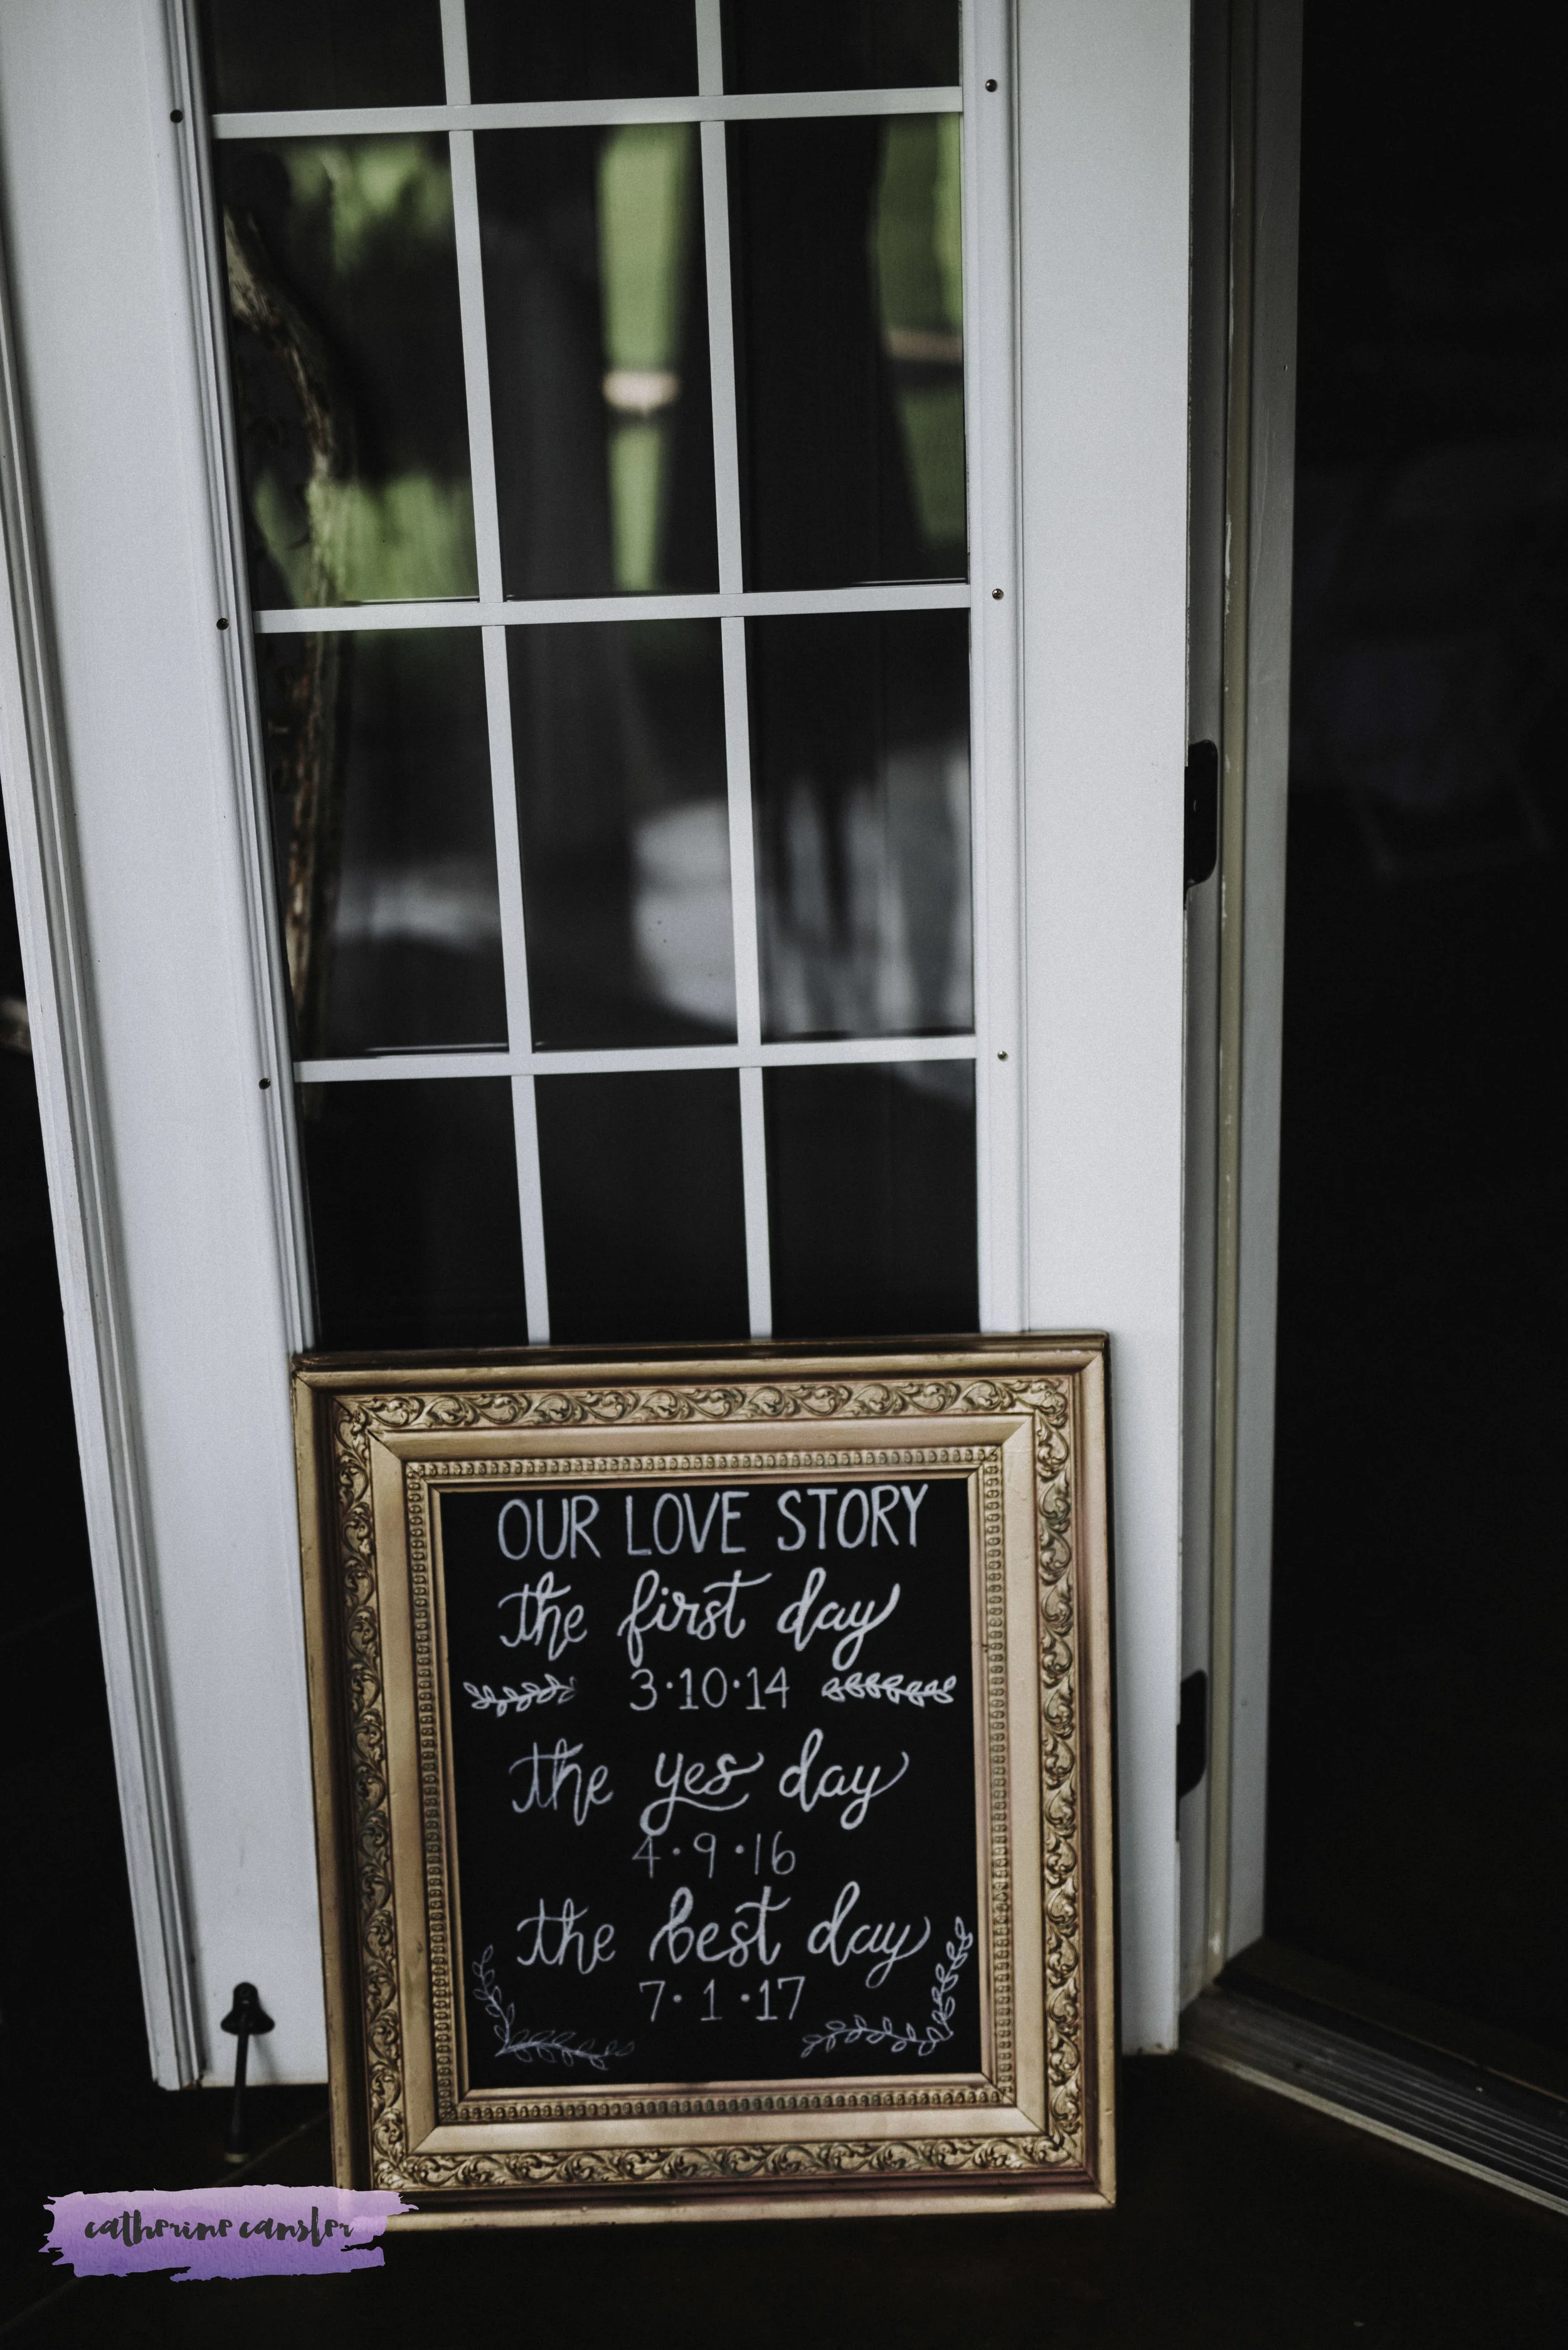 OUR LOVE STORY
the first day
3·10·14
the yes day
4·9·16
the best day
7·1·17
catherine cansler